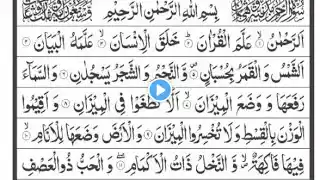 بِسْمِ اللهِ الرَّحْمٰنِ الرَّحِيْمِ
اَلرَّحْمٰنُ ۙ۱ عَلَّمَ الْقُرْاٰنَ ؕ۲ خَلَقَ الْاِنْسَانَ ۙ۳ عَلَّمَهُ الْبَيَانَ ۴
اَلشَّمْسُ وَ الْقَمَرُ بِحُسْبَانٍ ۪۵ وَّ النَّجْمُ وَ الشَّجَرُ يَسْجُدٰنِ ۶ وَ السَّمَآءَ
رَفَعَهَا وَ وَضَعَ الْمِيْزَانَ ۙ۷ اَلَّا تَطْغَوْا فِي الْمِيْزَانِ ۸ وَ اَقِيْمُوا
الْوَزْنَ بِالْقِسْطِ وَ لَا تُخْسِرُوا الْمِيْزَانَ ۹ وَ الْاَرْضَ وَضَعَهَا لِلْاَنَامِ ۙ۱۰
فِيْهَا فَاكِهَةٌ ۪ۙ وَّ النَّخْلُ ذَاتُ الْاَكْمَامِ ۖ۱۱ وَ الْحَبُّ ذُو الْعَصْفِ